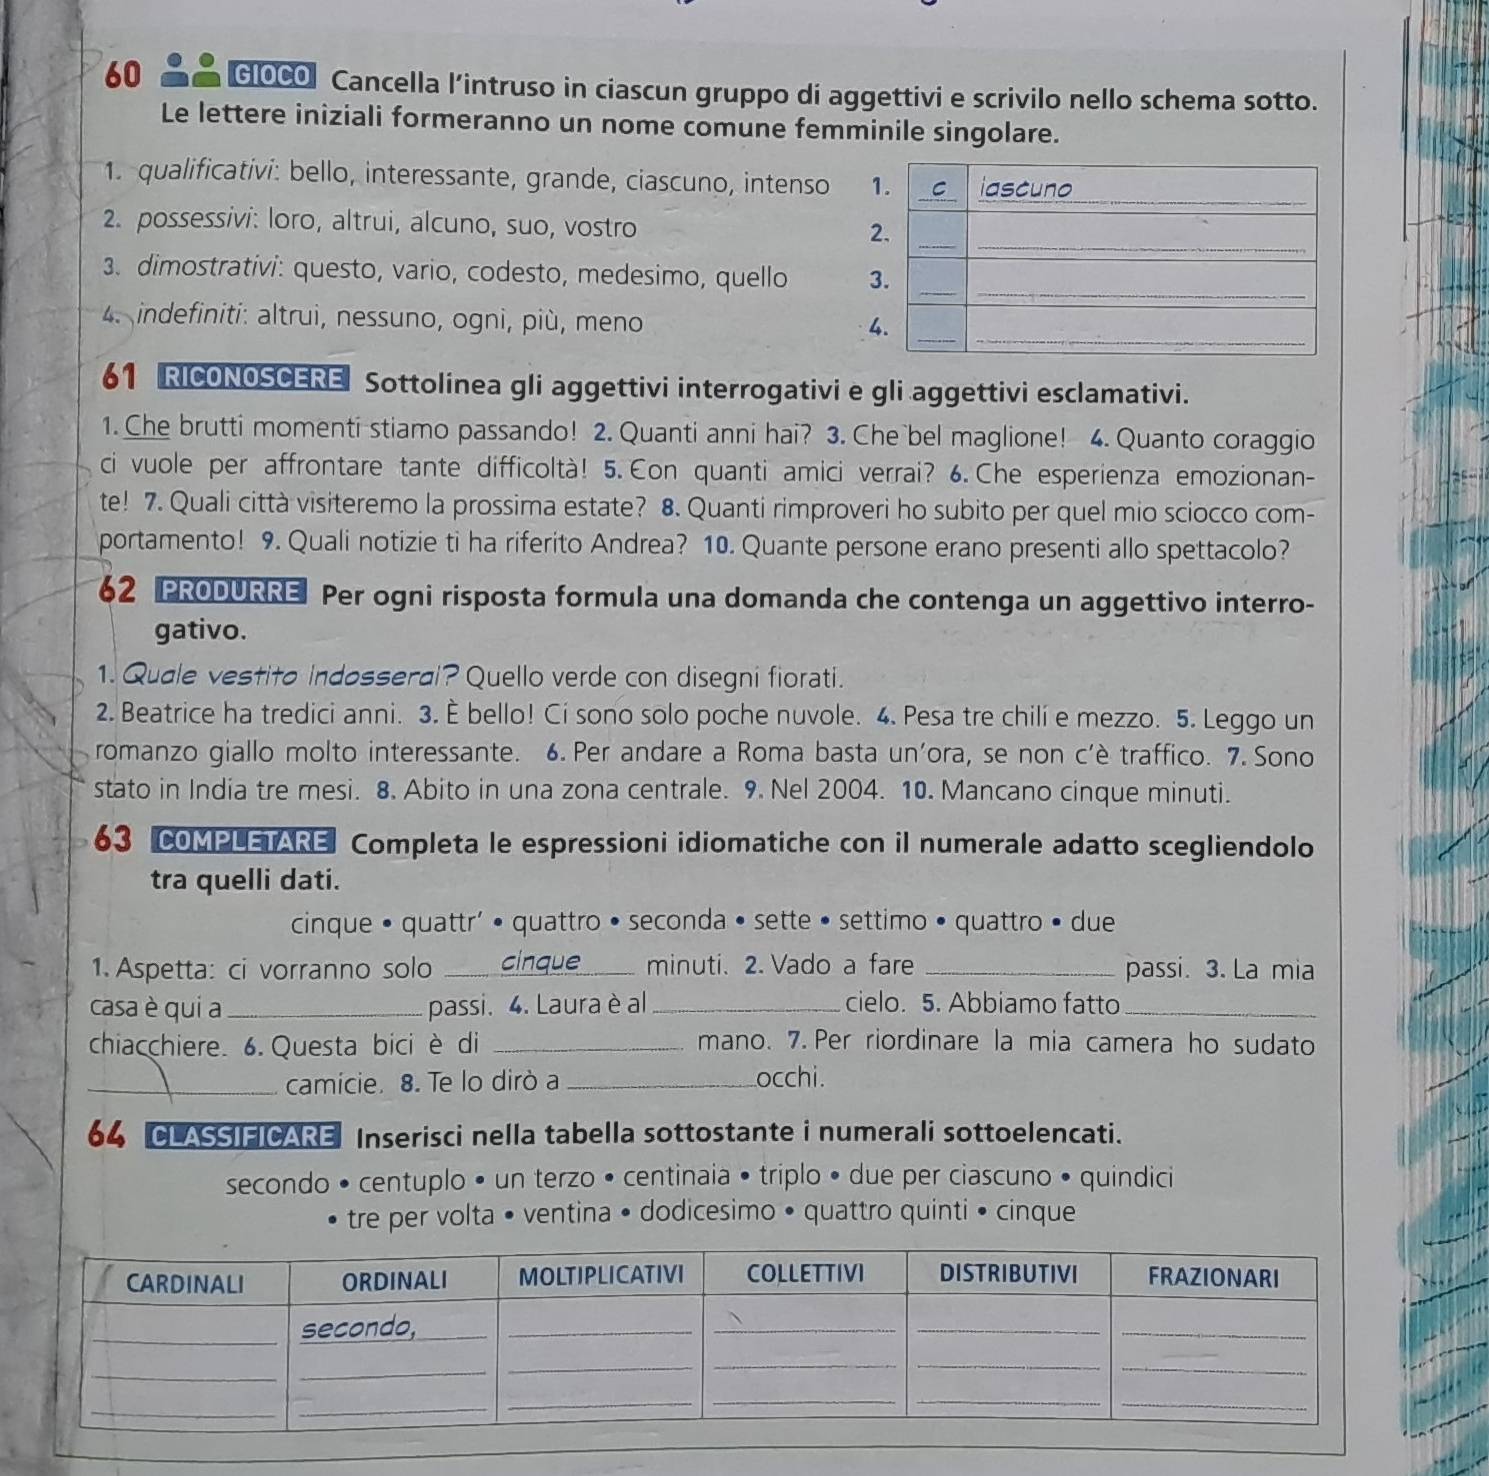 60 GIOCO Cancella l'intruso in ciascun gruppo di aggettivi e scrivilo nello schema sotto.
Le lettere iniziali formeranno un nome comune femminile singolare.
1. qualificativi: bello, interessante, grande, ciascuno, intenso 1. c iascuno
2. possessivi: loro, altrui, alcuno, suo, vostro 2.
3. dimostrativi: questo, vario, codesto, medesimo, quello 3.
4. indefiniti: altrui, nessuno, ogni, più, meno 4.
61 RICONOSCERE Sottolinea gli aggettivi interrogativi e gli aggettivi esclamativi.
1. Che brutti momenti stiamo passando! 2. Quanti anni hai? 3. Che bel maglione! 4. Quanto coraggio
ci vuole per affrontare tante difficoltà! 5. Con quanti amici verrai? 6. Che esperienza emozionan-
te! 7. Quali città visiteremo la prossima estate? 8. Quanti rimproveri ho subito per quel mio sciocco com-
portamento! 9. Quali notizie ti ha riferito Andrea? 10. Quante persone erano presenti allo spettacolo?
62 PRODURRE Per ogni risposta formula una domanda che contenga un aggettivo interro-
gativo.
1. Quale vestito indosserai? Quello verde con disegni fiorati.
2. Beatrice ha tredici anni. 3. È bello! Ci sono solo poche nuvole. 4. Pesa tre chili e mezzo. 5. Leggo un
romanzo giallo molto interessante. 6. Per andare a Roma basta un'ora, se non c'è traffico. 7. Sono
stato in India tre mesi. 8. Abito in una zona centrale. 9. Nel 2004. 10. Mancano cinque minuti.
63 COMPLETARE Completa le espressioni idiomatiche con il numerale adatto scegliendolo
tra quelli dati.
cinque • quattr' • quattro • seconda • sette • settimo • quattro • due
1. Aspetta: ci vorranno solo cinque minuti. 2. Vado a fare ____ passi. 3. La mia
casa è qui a ____ passi. 4. Laura è al ____ cielo. 5. Abbiamo fatto ____
chiacchiere. 6. Questa bici è di ____ mano. 7. Per riordinare la mia camera ho sudato
____ camicie. 8. Te lo dirò a ____ occhi.
64 CLASSIFICARE Inserisci nella tabella sottostante i numerali sottoelencati.
secondo • centuplo • un terzo • centinaia • triplo • due per ciascuno • quindici
• tre per volta • ventina • dodicesimo • quattro quinti • cinque
CARDINALI ORDINALI MOLTIPLICATIVI COLLETTIVI DISTRIBUTIVI FRAZIONARI
secondo,